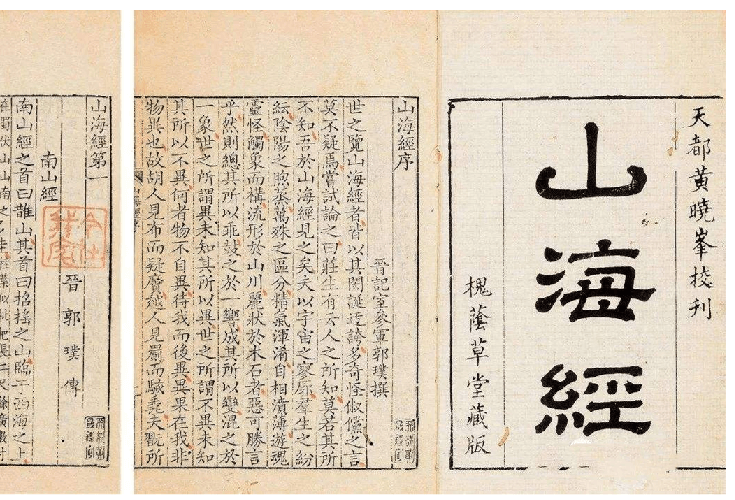 天都黃曉峯挍刊
山海經
槐蔭草堂藏版
山海經序
晉記室參軍郭璞撰
世之覽山海經者皆以其閎誕迂誇多奇怪俶儻之言
莫不疑焉嘗試論之曰莊生有云人之所知莫若其所
不知吾於山海經見之矣夫以宇宙之寥廓羣生之紛
紜陰陽之煦蒸萬殊之區分精氣渾淆自相濆薄遊魂
靈怪觸象而構流形於山川麗狀於木石者惡可勝言
乎然則總其所以乖鼓之於一響成其所以變混之於
一象世之所謂異未知其所以異世之所謂不異未知
其所以不異何者物不自異待我而後異異果在我非
物異也故胡人見布而疑黂越人見罽而駭毳夫翫所
山海經第一
晉郭璞傳
南山經
南山經之首曰䧿山其首曰招搖之山臨于西海之上